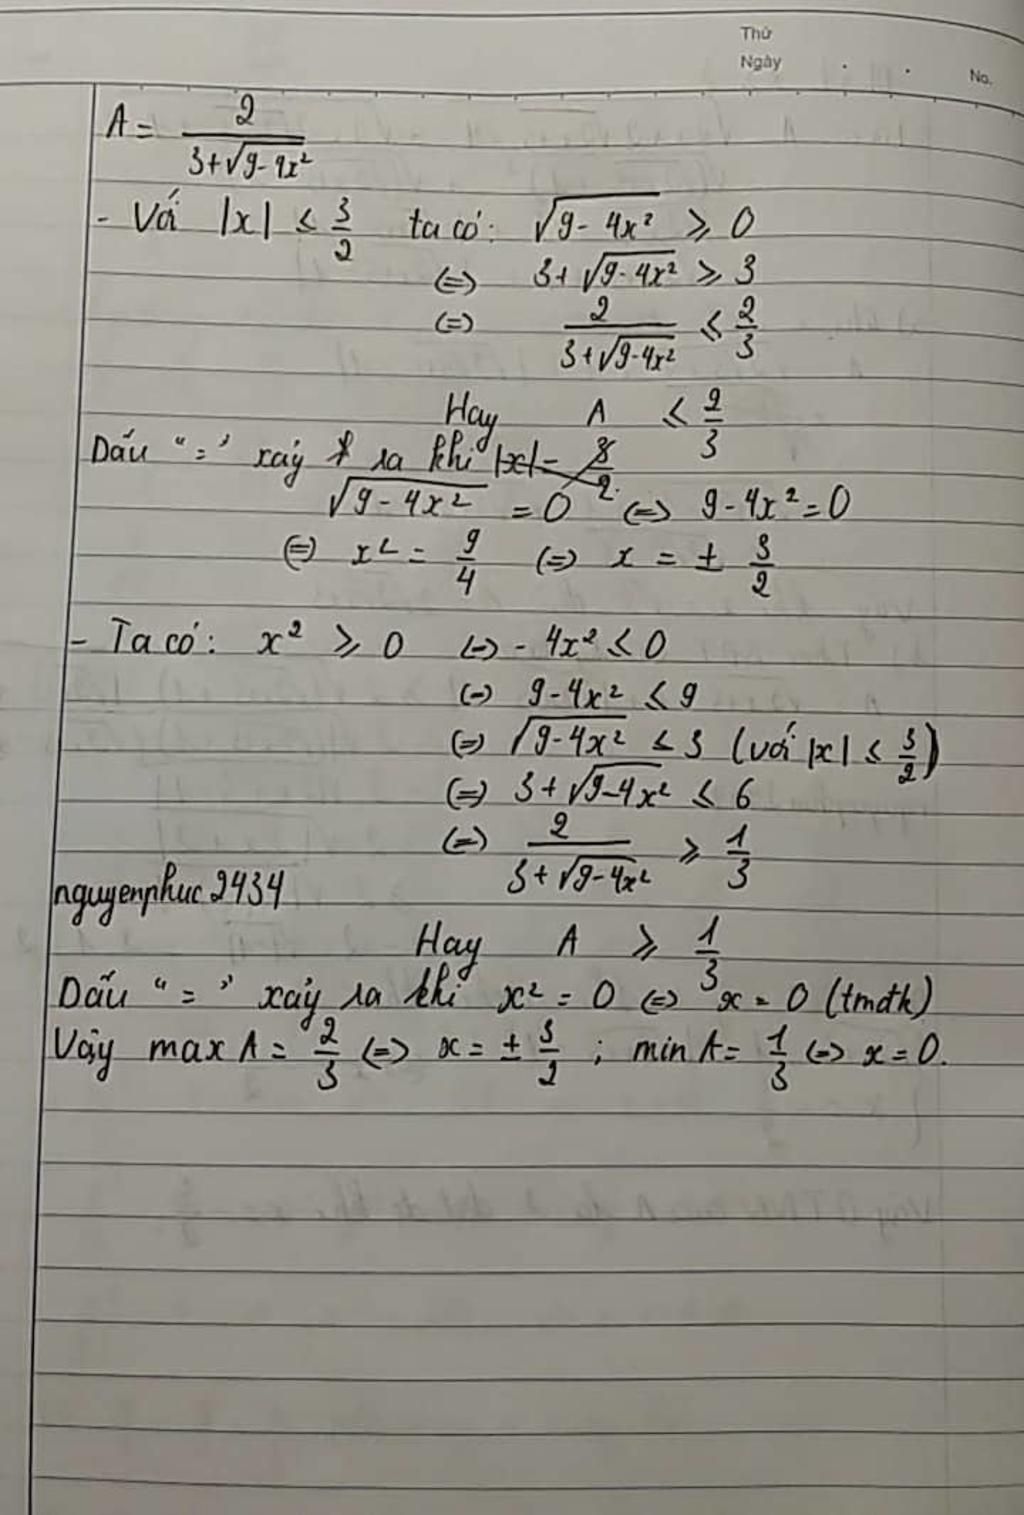 Thứ
Ngày . . No.
A = 2/(3+√(9-4x²))
- Với |x| ≤ 3/2 ta có: √(9-4x²) ≥ 0
(=) 3+√(9-4x²) ≥ 3
(=) 2/(3+√(9-4x²)) ≤ 2/3
Hay A ≤ 2/3
Dấu "=" xảy ra khi |x| = 3/2
√(9-4x²) = 0 (=) 9-4x² = 0
(=) x² = 9/4 (=) x = ± 3/2
- Ta có: x² ≥ 0 (=) -4x² ≤ 0
(=) 9-4x² ≤ 9
(=) √(9-4x²) ≤ 3 (với |x| ≤ 3/2)
(=) 3+√(9-4x²) ≤ 6
(=) 2/(3+√(9-4x²)) ≥ 1/3
nguyenphuc2434
Hay A ≥ 1/3
Dấu "=" xảy ra khi x² = 0 (=) x = 0 (tmđk)
Vậy max A = 2/3 (=) x = ± 3/2 ; min A = 1/3 (=) x = 0.